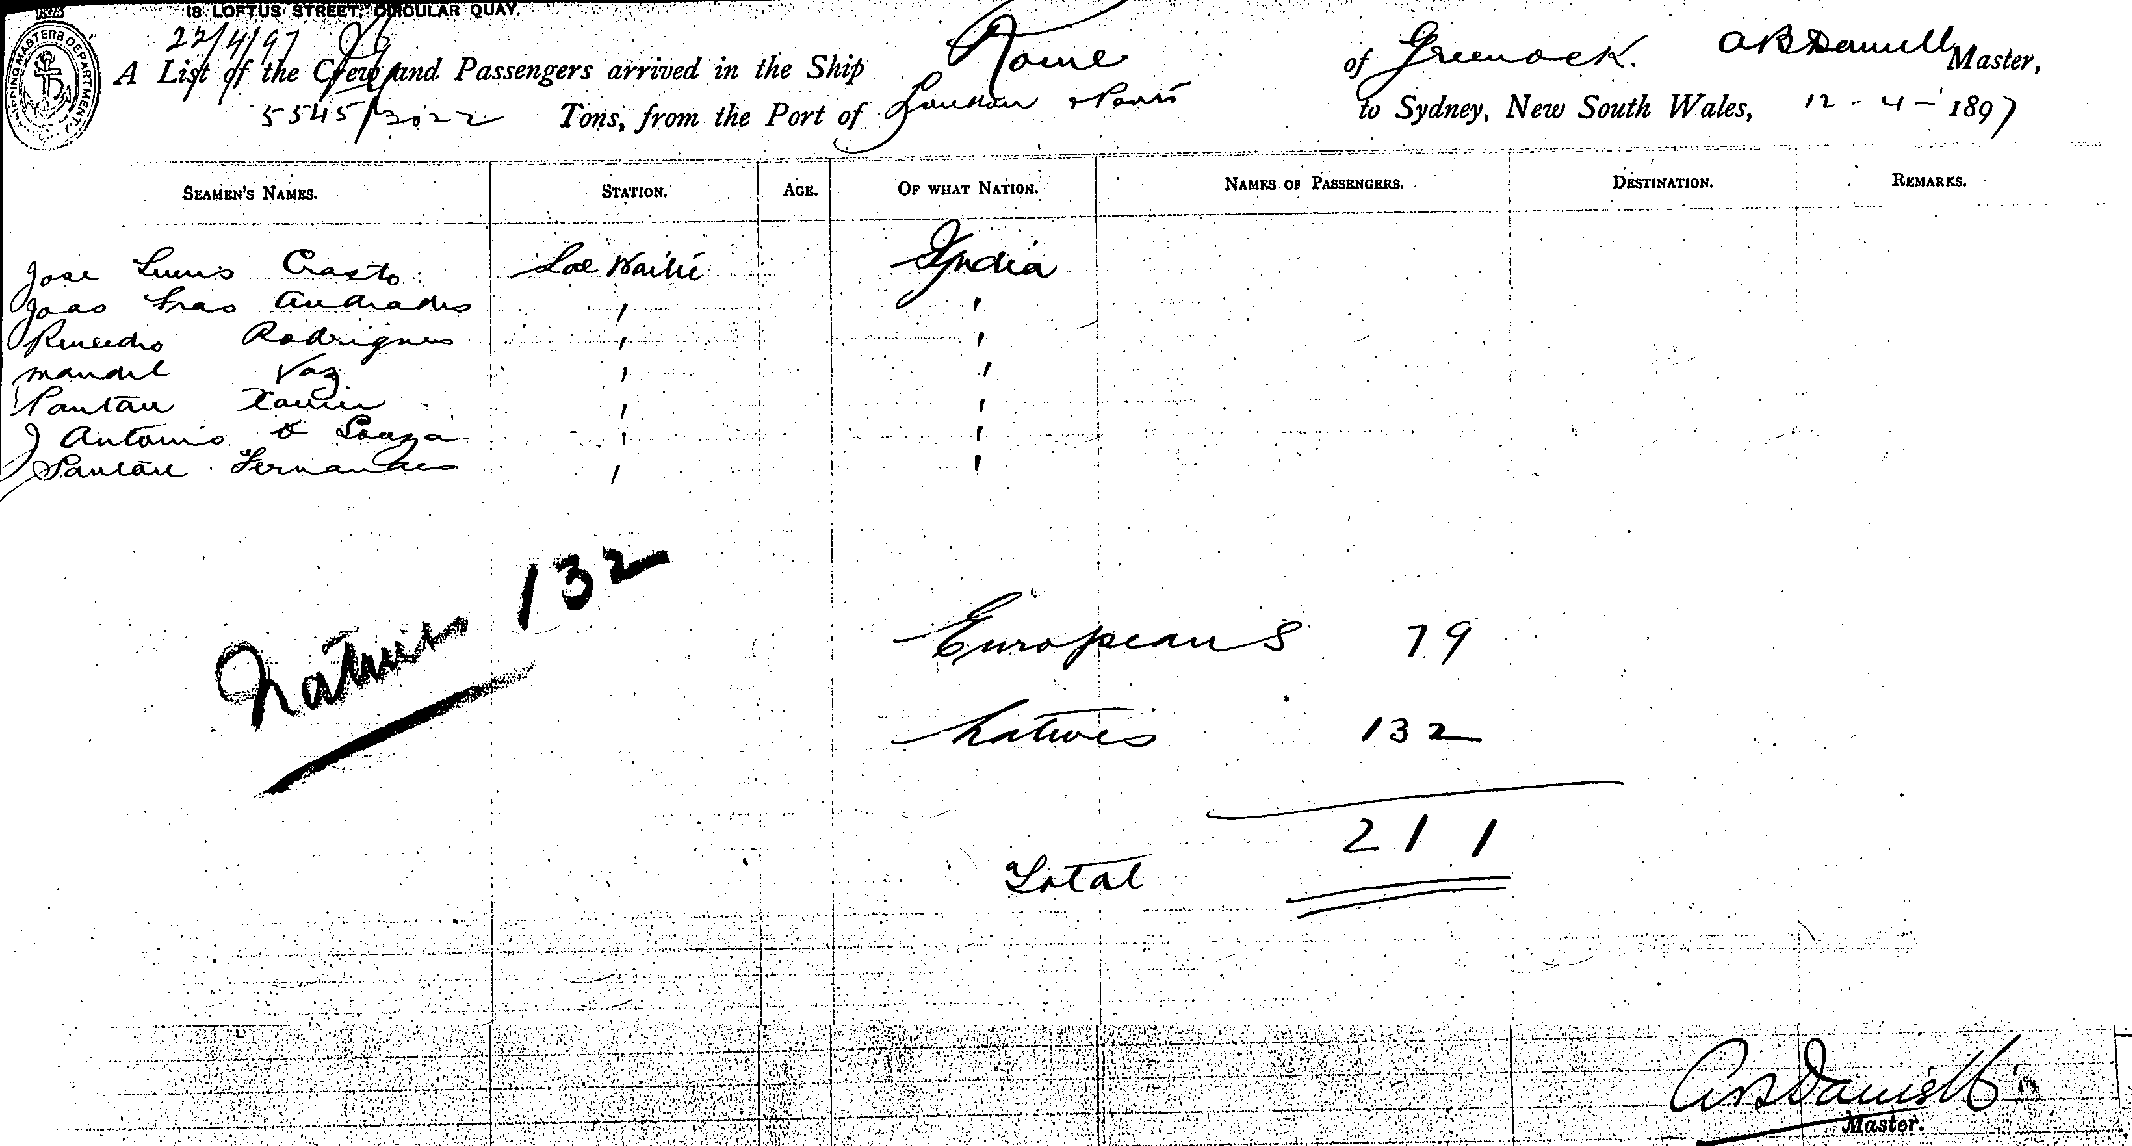 18 LOFTUS STREET, CIRCULAR QUAY.
22/4/97
SHIPPING MASTERS DEPARTMENT
A List of the Crew and Passengers arrived in the Ship Rome of Greenock. A B Daniell Master,
5545/3022 Tons, from the Port of London & Ports to Sydney, New South Wales, 12-4-1897
SEAMEN'S NAMES. STATION. AGE. OF WHAT NATION. NAMES OF PASSENGERS. DESTINATION. REMARKS.
Jose Luuis Crasto India
Joao Frao Andrades '  '
Rodrigues '  '
Manuel Vaz '  '
Xavier '  '
J Antonio D Souza '  '
Santan Fernandes '  '
Natives 132
Europeans 79
Natives 132
211
Total
A B Daniell
Master.